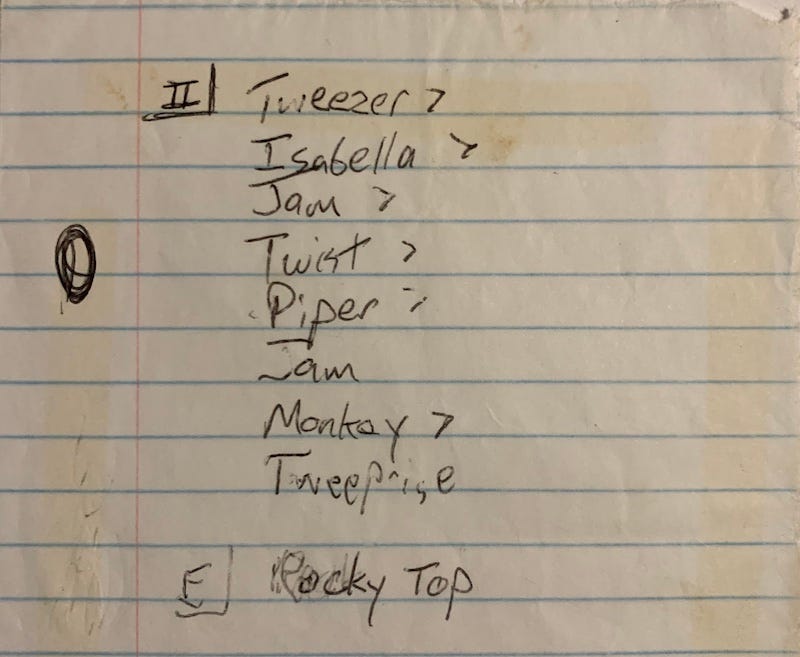 II Tweezer >
Isabella >
Jam >
Twist >
Piper >
Jam
Monkey >
Tweeprise
E Rocky Top